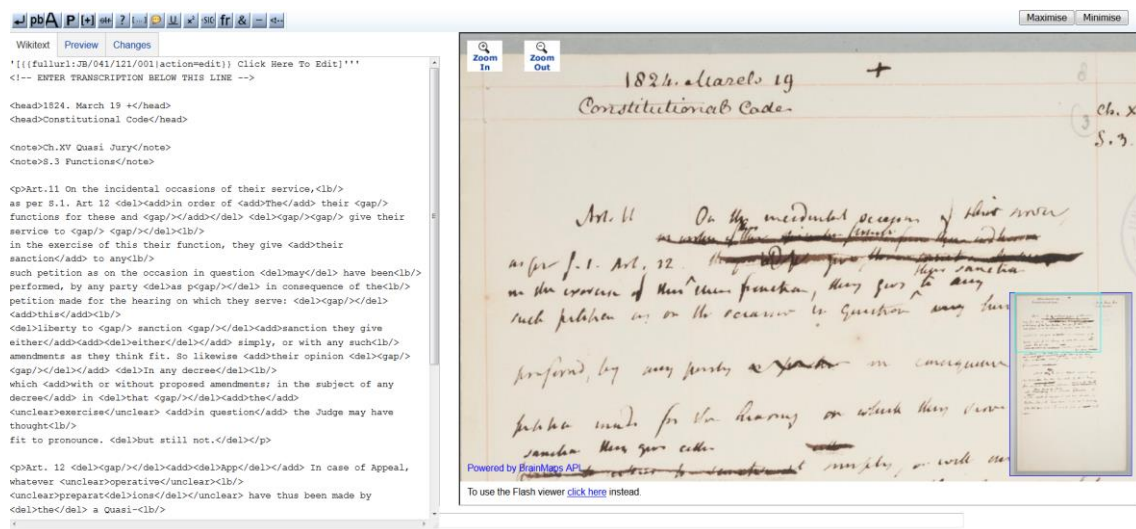 Maximise Minimise
Wikitext Preview Changes
'[{{fullurl:JB/041/121/001|action=edit}} Click Here To Edit]'''
<!-- ENTER TRANSCRIPTION BELOW THIS LINE -->
<head>1824. March 19 +</head>
<head>Constitutional Code</head>
<note>Ch.XV Quasi Jury</note>
<note>S.3 Functions</note>
<p>Art.11 On the incidental occasions of their service,<lb/>
as per S.1. Art 12 <del><add>in order of <add>The</add> their <gap/>
functions for these and <gap/></add></del> <del><gap/><gap/> give their
service to <gap/> <gap/></del><lb/>
in the exercise of this their function, they give <add>their
sanction</add> to any<lb/>
such petition as on the occasion in question <del>may</del> have been<lb/>
performed, by any party <del>as p<gap/></del> in consequence of the<lb/>
petition made for the hearing on which they serve: <del><gap/></del>
<add>this</add><lb/>
<del>liberty to <gap/> sanction <gap/></del><add>sanction they give
either</add><add><del>either</del></add> simply, or with any such<lb/>
amendments as they think fit. So likewise <add>their opinion <del><gap/>
<gap/></del></add> <del>In any decree</del><lb/>
which <add>with or without proposed amendments; in the subject of any
decree</add> in <del>that <gap/></del><add>the</add>
<unclear>exercise</unclear> <add>in question</add> the Judge may have
thought<lb/>
fit to pronounce. <del>but still not.</del></p>
<p>Art. 12 <del><gap/></del><add><del>App</del></add> In case of Appeal,
whatever <unclear>operative</unclear><lb/>
<unclear>preparat<del>ions</del></unclear> have thus been made by
<del>the</del> a Quasi-<lb/>
Zoom In
Zoom Out
1824. March 19 +
Constitutional Code
Ch. X
3
S. 3.
Art. 11 On the incidental occasions of their service,
as per S. 1. Art. 12.
their sanction
in the exercise of this their function, they give to any
such petition as on the occasion in question
by any party in consequence
petition made for the hearing on which they serve
sanction they give either
simply, or with
Powered by BrainMaps API
To use the Flash viewer click here instead.